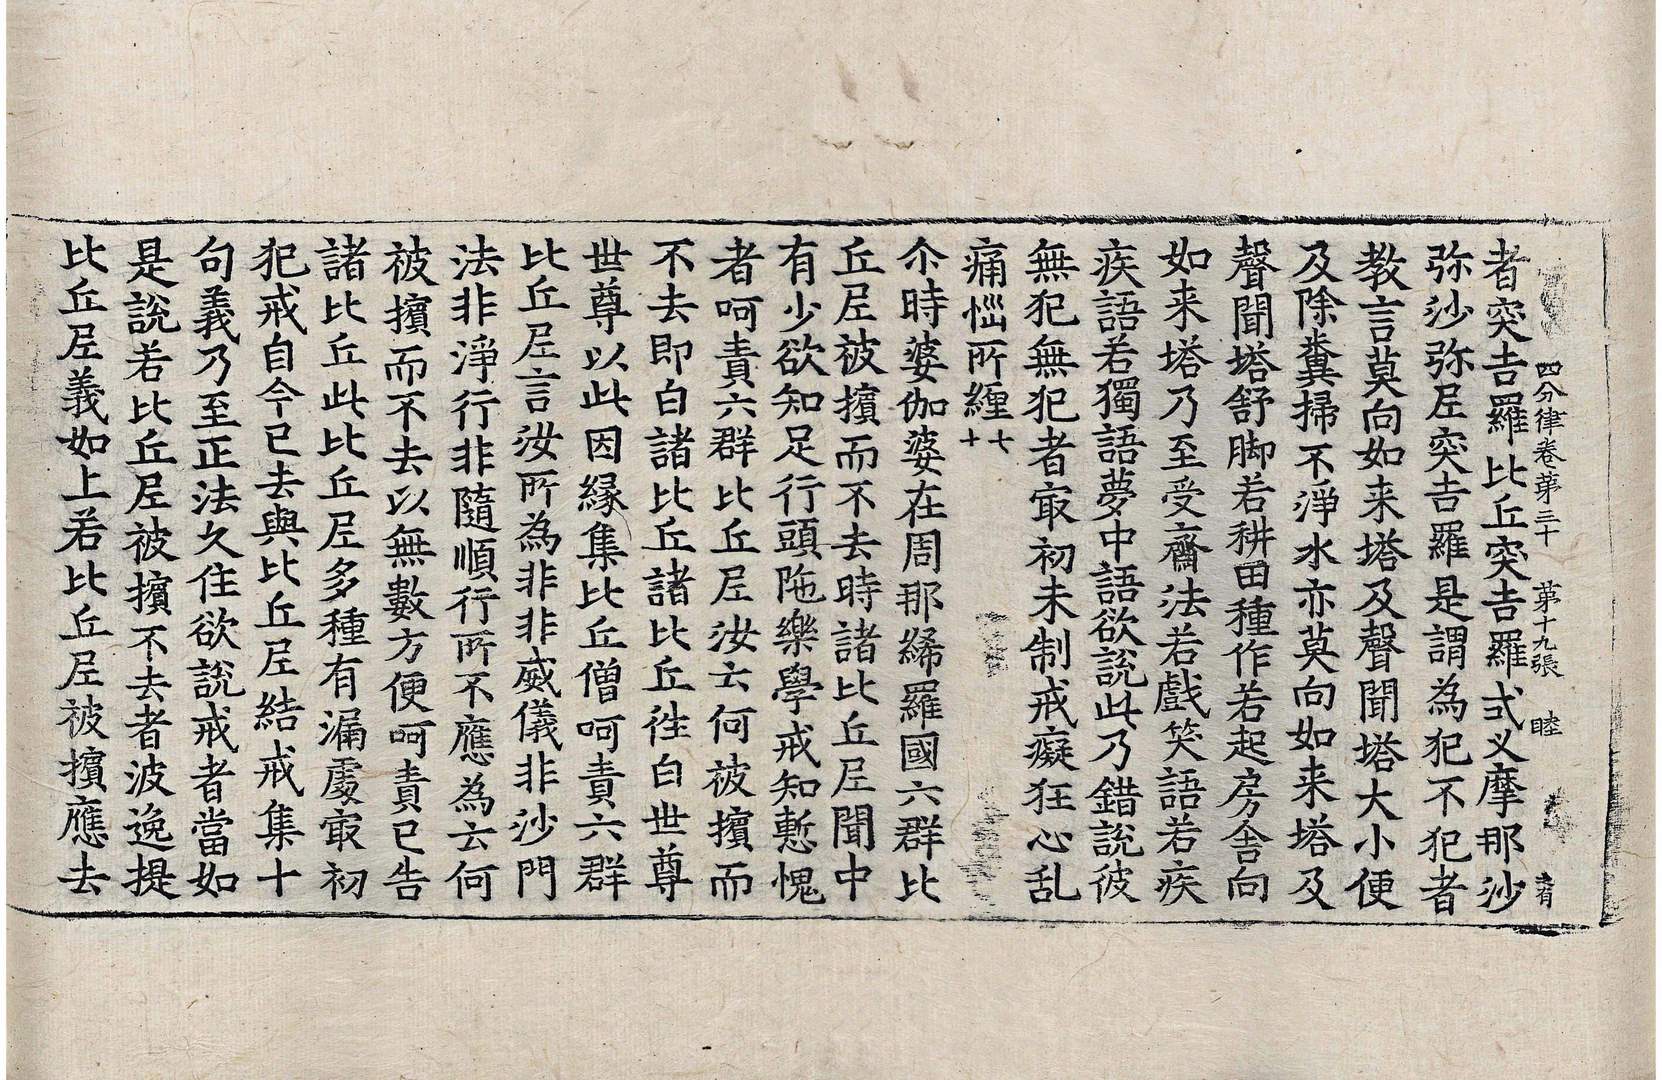 四分律卷第三十 第十九張 睦
者突吉羅比丘突吉羅式叉摩那沙
弥沙弥尼突吉羅是謂為犯不犯者
教言莫向如来塔及聲聞塔大小便
及除糞掃不淨水亦莫向如来塔及
聲聞塔舒脚若耕田種作若起房舍向
如来塔乃至受齋法若戲笑語若疾
疾語若獨語夢中語欲說此乃錯說彼
無犯無犯者㝡初未制戒癡狂心乱
痛惱所纏七十
尒時婆伽婆在周那絺羅國六群比
丘尼被擯而不去時諸比丘尼聞中
有少欲知足行頭陁樂學戒知慙愧
者呵責六群比丘尼汝云何被擯而
不去即白諸比丘諸比丘徃白世尊
世尊以此因緣集比丘僧呵責六群
比丘尼言汝所為非非威儀非沙門
法非淨行非隨順行所不應為云何
被擯而不去以無數方便呵責已告
諸比丘此比丘尼多種有漏處㝡初
犯戒自今已去與比丘尼結戒集十
句義乃至正法久住欲說戒者當如
是說若比丘尼被擯不去者波逸提
比丘尼義如上若比丘尼被擯應去